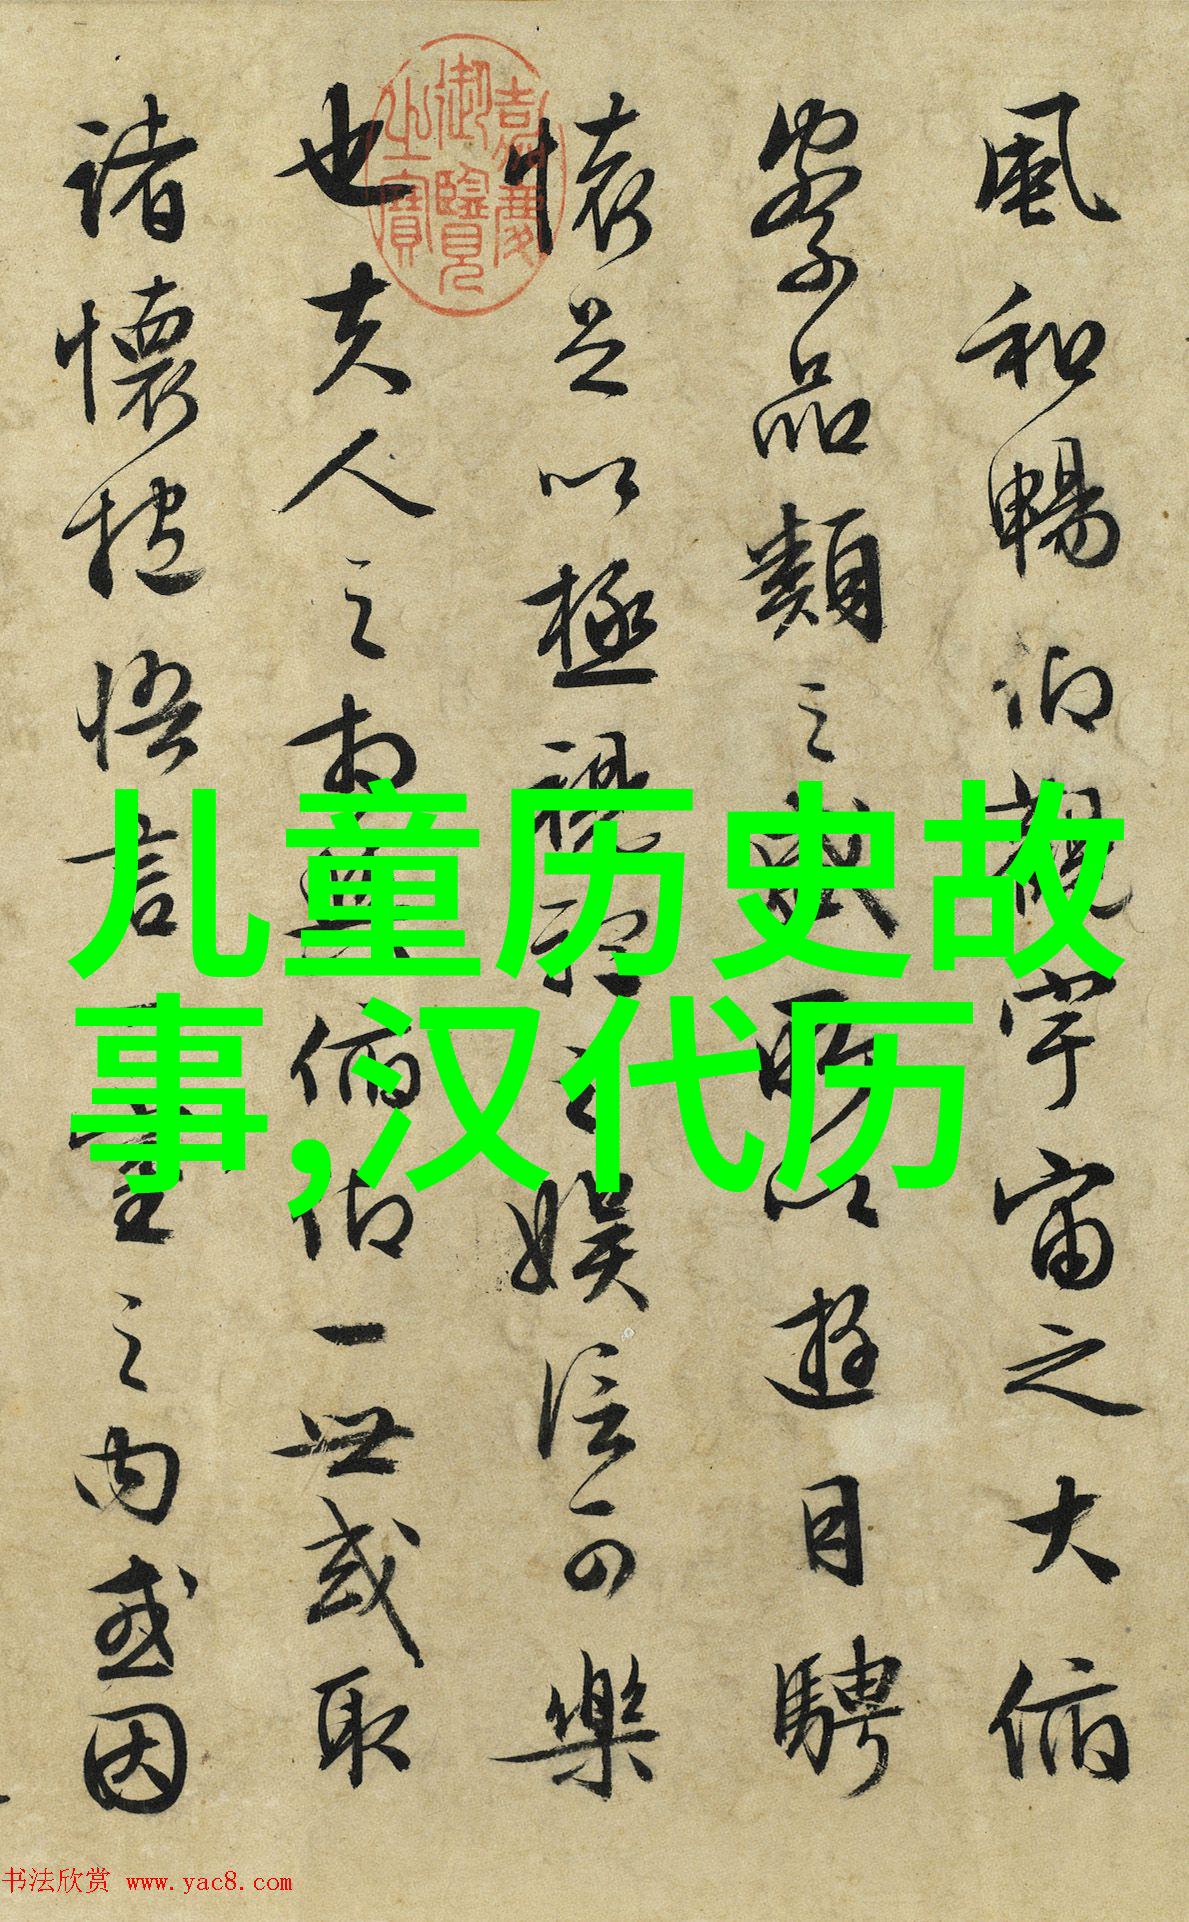 風和暢仰觀宇宙之大俯
察品類之盛所以遊目騁
懷足以極視聽之娛信可樂
也夫人之相與俯仰一世或取
諸懷抱悟言一室之內或因
嘉慶
御覽
之寶
儿童历史故
事,汉代历
书法欣赏 www.yac8.com